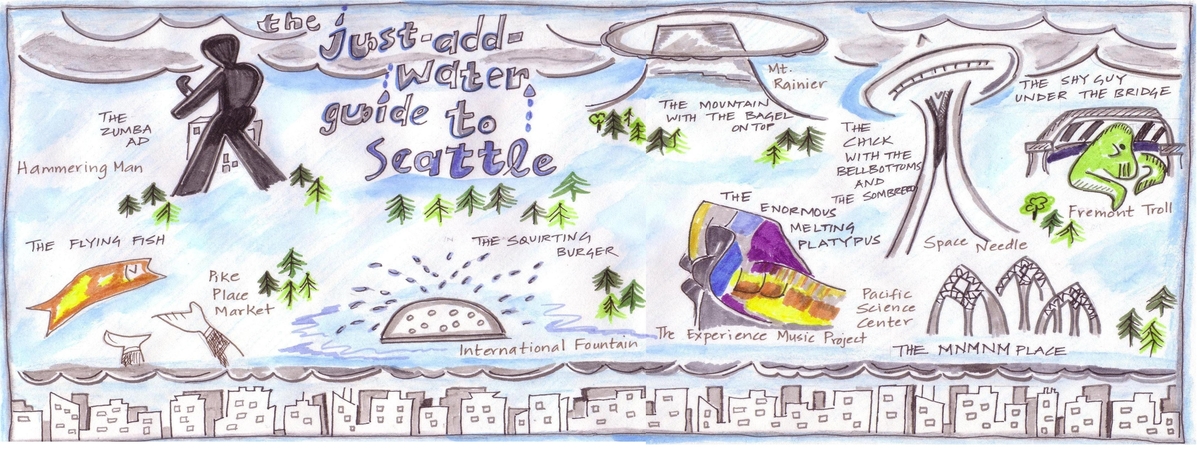 the
just-add-
water
guide to
Seattle
THE
ZUMBA
AD
Hammering Man
Mt.
Rainier
THE MOUNTAIN
WITH THE BAGEL
ON TOP
THE
CHICK
WITH THE
BELLBOTTOMS
AND
THE SOMBRERO
Space Needle
THE SHY GUY
UNDER THE BRIDGE
Fremont Troll
THE FLYING FISH
Pike
Place
Market
THE SQUIRTING
BURGER
International Fountain
THE
ENORMOUS
MELTING
PLATYPUS
The Experience Music Project
Pacific
Science
Center
THE MNMNM PLACE